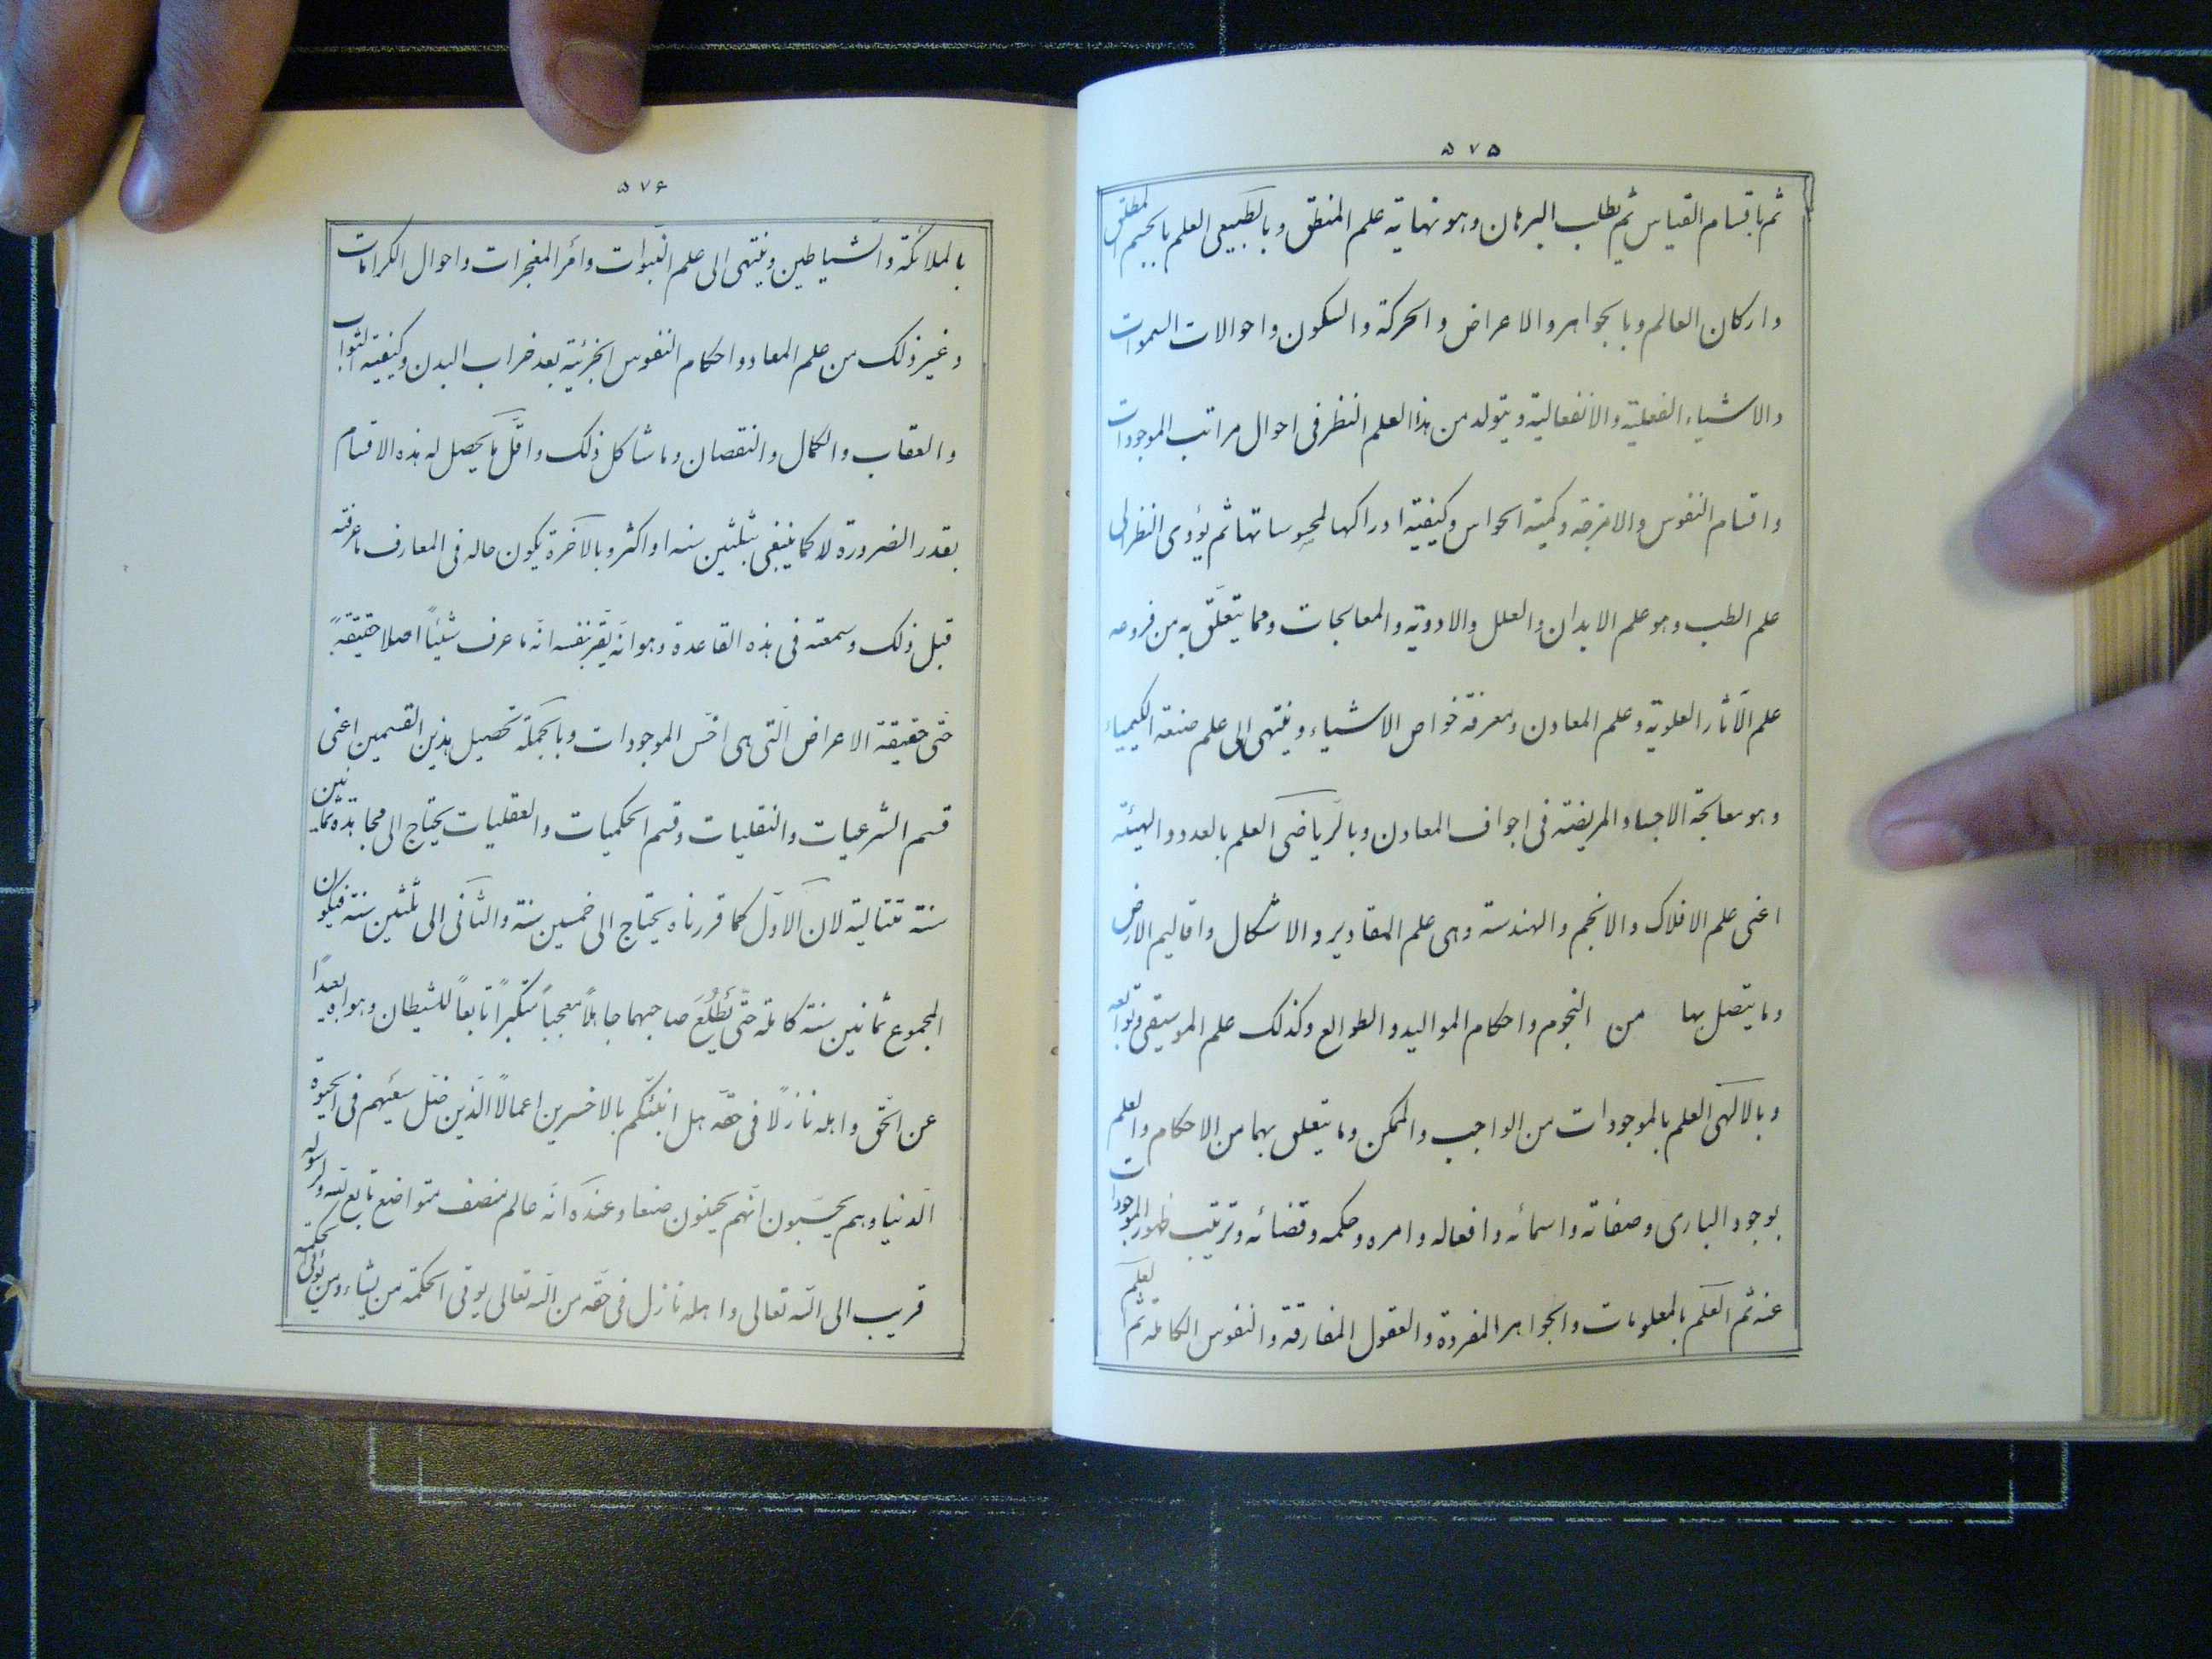 ۵۷۵
ثم باقسام القياس ثم يطلب البرهان وهو نهاية علم المنطق وبالطبيعى العلم بالجسم المطلق
واركان العالم وبالجواهر والاعراض والحركة والسكون واحوالات السموات
والاشياء الفعلية والانفعالية ويتولد من هذا العلم النظر فى احوال مراتب الموجودات
واقسام النفوس والامزجه وكمية الحواس وكيفية ادراكها لمحسوساتها ثم يؤدى النظر الى
علم الطب وهو علم الابدان والعلل والادوية والمعالجات ومما يتعلّق به من فروعه
علم الآثار العلوية وعلم المعادن ومعرفة خواص الاشياء وينتهى الى علم صنعة الكيمياء
وهو معالجة الاجساد المريضة فى اجواف المعادن وبالرّياضى العلم بالعدد والهيئة
اعنى علم الافلاك والانجم والهندسة وهى علم المقادير والاشكال واقاليم الارض
وما يتصل بها من النجوم واحكام المواليد والطوالع وكذلك علم الموسيقى وتوابعه
وبالالهى العلم بالموجودات من الواجب والممكن وما يتعلق بهما من الاحكام والعلم
بوجود البارى وصفاته واسمائه وافعاله وامره وحكمه وقضائه وترتيب ظهور الموجودات
عنه ثم العلم بالمعلومات والجواهر المفردة والعقول المفارقة والنفوس الكاملة ثم العلم
۵۷۶
بالملائكة والشياطين وينتهى الى علم النبوات وأمر المعجزات واحوال الكرامات
وغير ذلك من علم المعاد واحكام النفوس الجزئية بعد خراب البدن وكيفية الثواب
والعقاب والكمال والنقصان وما شاكل ذلك واقلّ ما يحصل له هذه الاقسام
بقدر الضرورة لا كما ينبغى بثلثين سنه او اكثر وبالآخرة يكون حاله فى المعارف ما عرفته
قبل ذلك وسمعته فى هذه القاعدة وهو انه يقرّ بنفسه انه ما عرف شيئًا اصلا حقيقةً
حتّى حقيقة الاعراض الّتى هى اخسّ الموجودات وبالجملة تحصيل هذين القسمين اعنى
قسم الشرعيات والنقليات وقسم الحكميات والعقليات يحتاج الى مجاهدة ثمانين
سنة متتالية لان الاوّل كما قررناه يحتاج الى خمسين سنة والثانى الى ثلثين سنة فيكون
المجموع ثمانين سنة كاملة حتّى يَطْلُعَ صاحبهما جاهلاً معجباً متكبراً تابعاً للشيطان وهواه بعيداً
عن الحق واهله نازلًا فى حقّه هل انبئكم بالاخسرين اعمالًا الّذين ضل سعيهم فى الحيوة
الدنيا وهم يحسبون انّهم يحسنون صنعا وعنده انّه عالم منصف متواضع تابع لله ولرسوله
قريب الى الله تعالى واهله نازل فى حقه من الله تعالى يوتى الحكمة من يشاء ومن يؤتى الحكمة